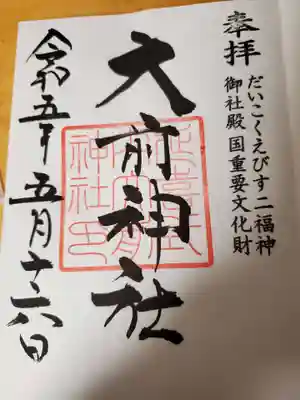 奉拝
だいこくえびす二福神
御社殿国重要文化財
大前神社
令和五年五月十六日